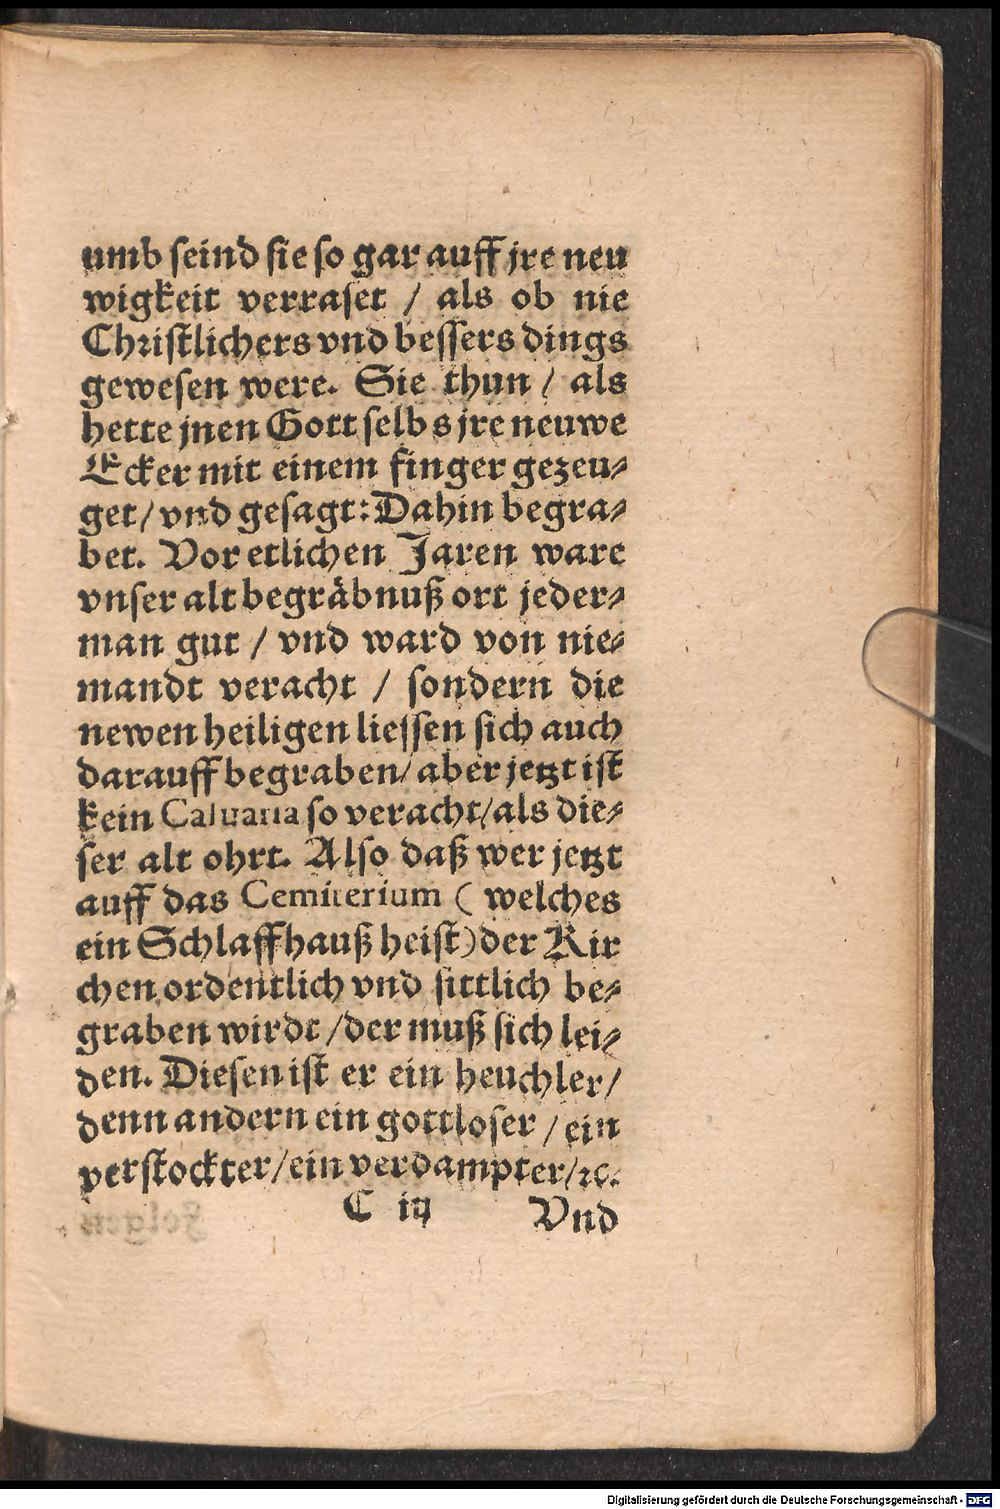 umb seind sie so gar auff jre neu
wigkeit verraset / als ob nie
Christlichers vnd bessers dings
gewesen were. Sie thun / als
hette jnen Gott selbs jre neuwe
Ecker mit einem finger gezeu⸗
get / vnd gesagt: Dahin begra⸗
bet. Vor etlichen Jaren ware
vnser alt begräbnuß ort jeder⸗
man gut / vnd ward von nie⸗
mandt veracht / sondern die
newen heiligen liessen sich auch
darauff begraben / aber jetzt ist
kein Caluaria so veracht / als die⸗
ser alt ohrt. Also daß wer jetzt
auff das Cemiterium ( welches
ein Schlaffhauß heist) der Kir
chen ordentlich vnd sittlich be⸗
graben wirdt / der muß sich lei⸗
den. Diesen ist er ein heuchler /
denn andern ein gottloser / ein
verstockter / ein verdampter / ꝛc.
C iij Vnd
Digitalisierung gefördert durch die Deutsche Forschungsgemeinschaft - DFG